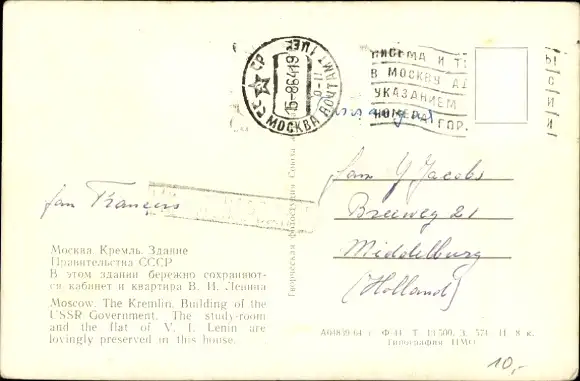 СССР
15-8-64-19
МОСКВА ПОЧТАМТ
ПИСЬМА И Т
В МОСКВУ АД
УКАЗАНИЕМ
НОМЕРА ГОР.
fam Y Jacobs
Breeweg 21
Middelburg
(Holland)
fam François
Москва. Кремль. Здание
Правительства СССР
В этом здании бережно сохраняют-
ся кабинет и квартира В. И. Ленина
Moscow. The Kremlin. Building of the
USSR Government. The study-room
and the flat of V. I. Lenin are
lovingly preserved in this house.
Творческая фотостудия Союза
А04839-64 г. Ф-И. Т. 10 500. З. 574. Ц. 8 к.
Типография ЦМФ
10,-